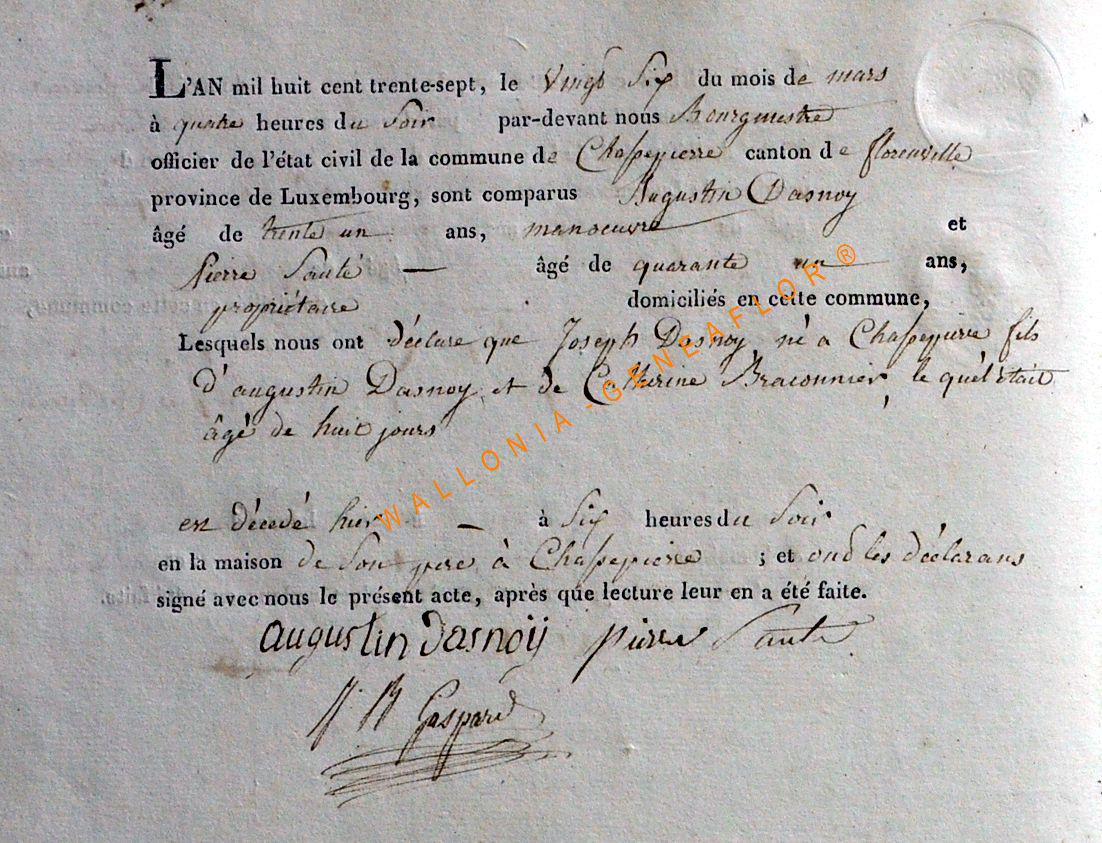 L'AN mil huit cent trente-sept, le vingt six du mois de mars
à quatre heures du soir par-devant nous Bourgmestre
officier de l'état civil de la commune de Chassepierre canton de florenville
province de Luxembourg, sont comparus Augustin Dasnoy
âgé de trente un ans, manoeuvre et
Pierre Santé — âgé de quarante un ans,
propriétaire domiciliés en cette commune,
Lesquels nous ont déclaré que Joseph Dasnoy né a Chassepierre fils
d'augustin Dasnoy et de Catherine Braconnier, le quél était
âgé de huit jours
est décédé hier — à six heures du soir
en la maison de son pere à Chassepierre ; et ont les déclarans
signé avec nous le présent acte, après que lecture leur en a été faite.
augustin dasnoij pierre Santé
Gaspard
WALLONIA - GENEAFLOR ®